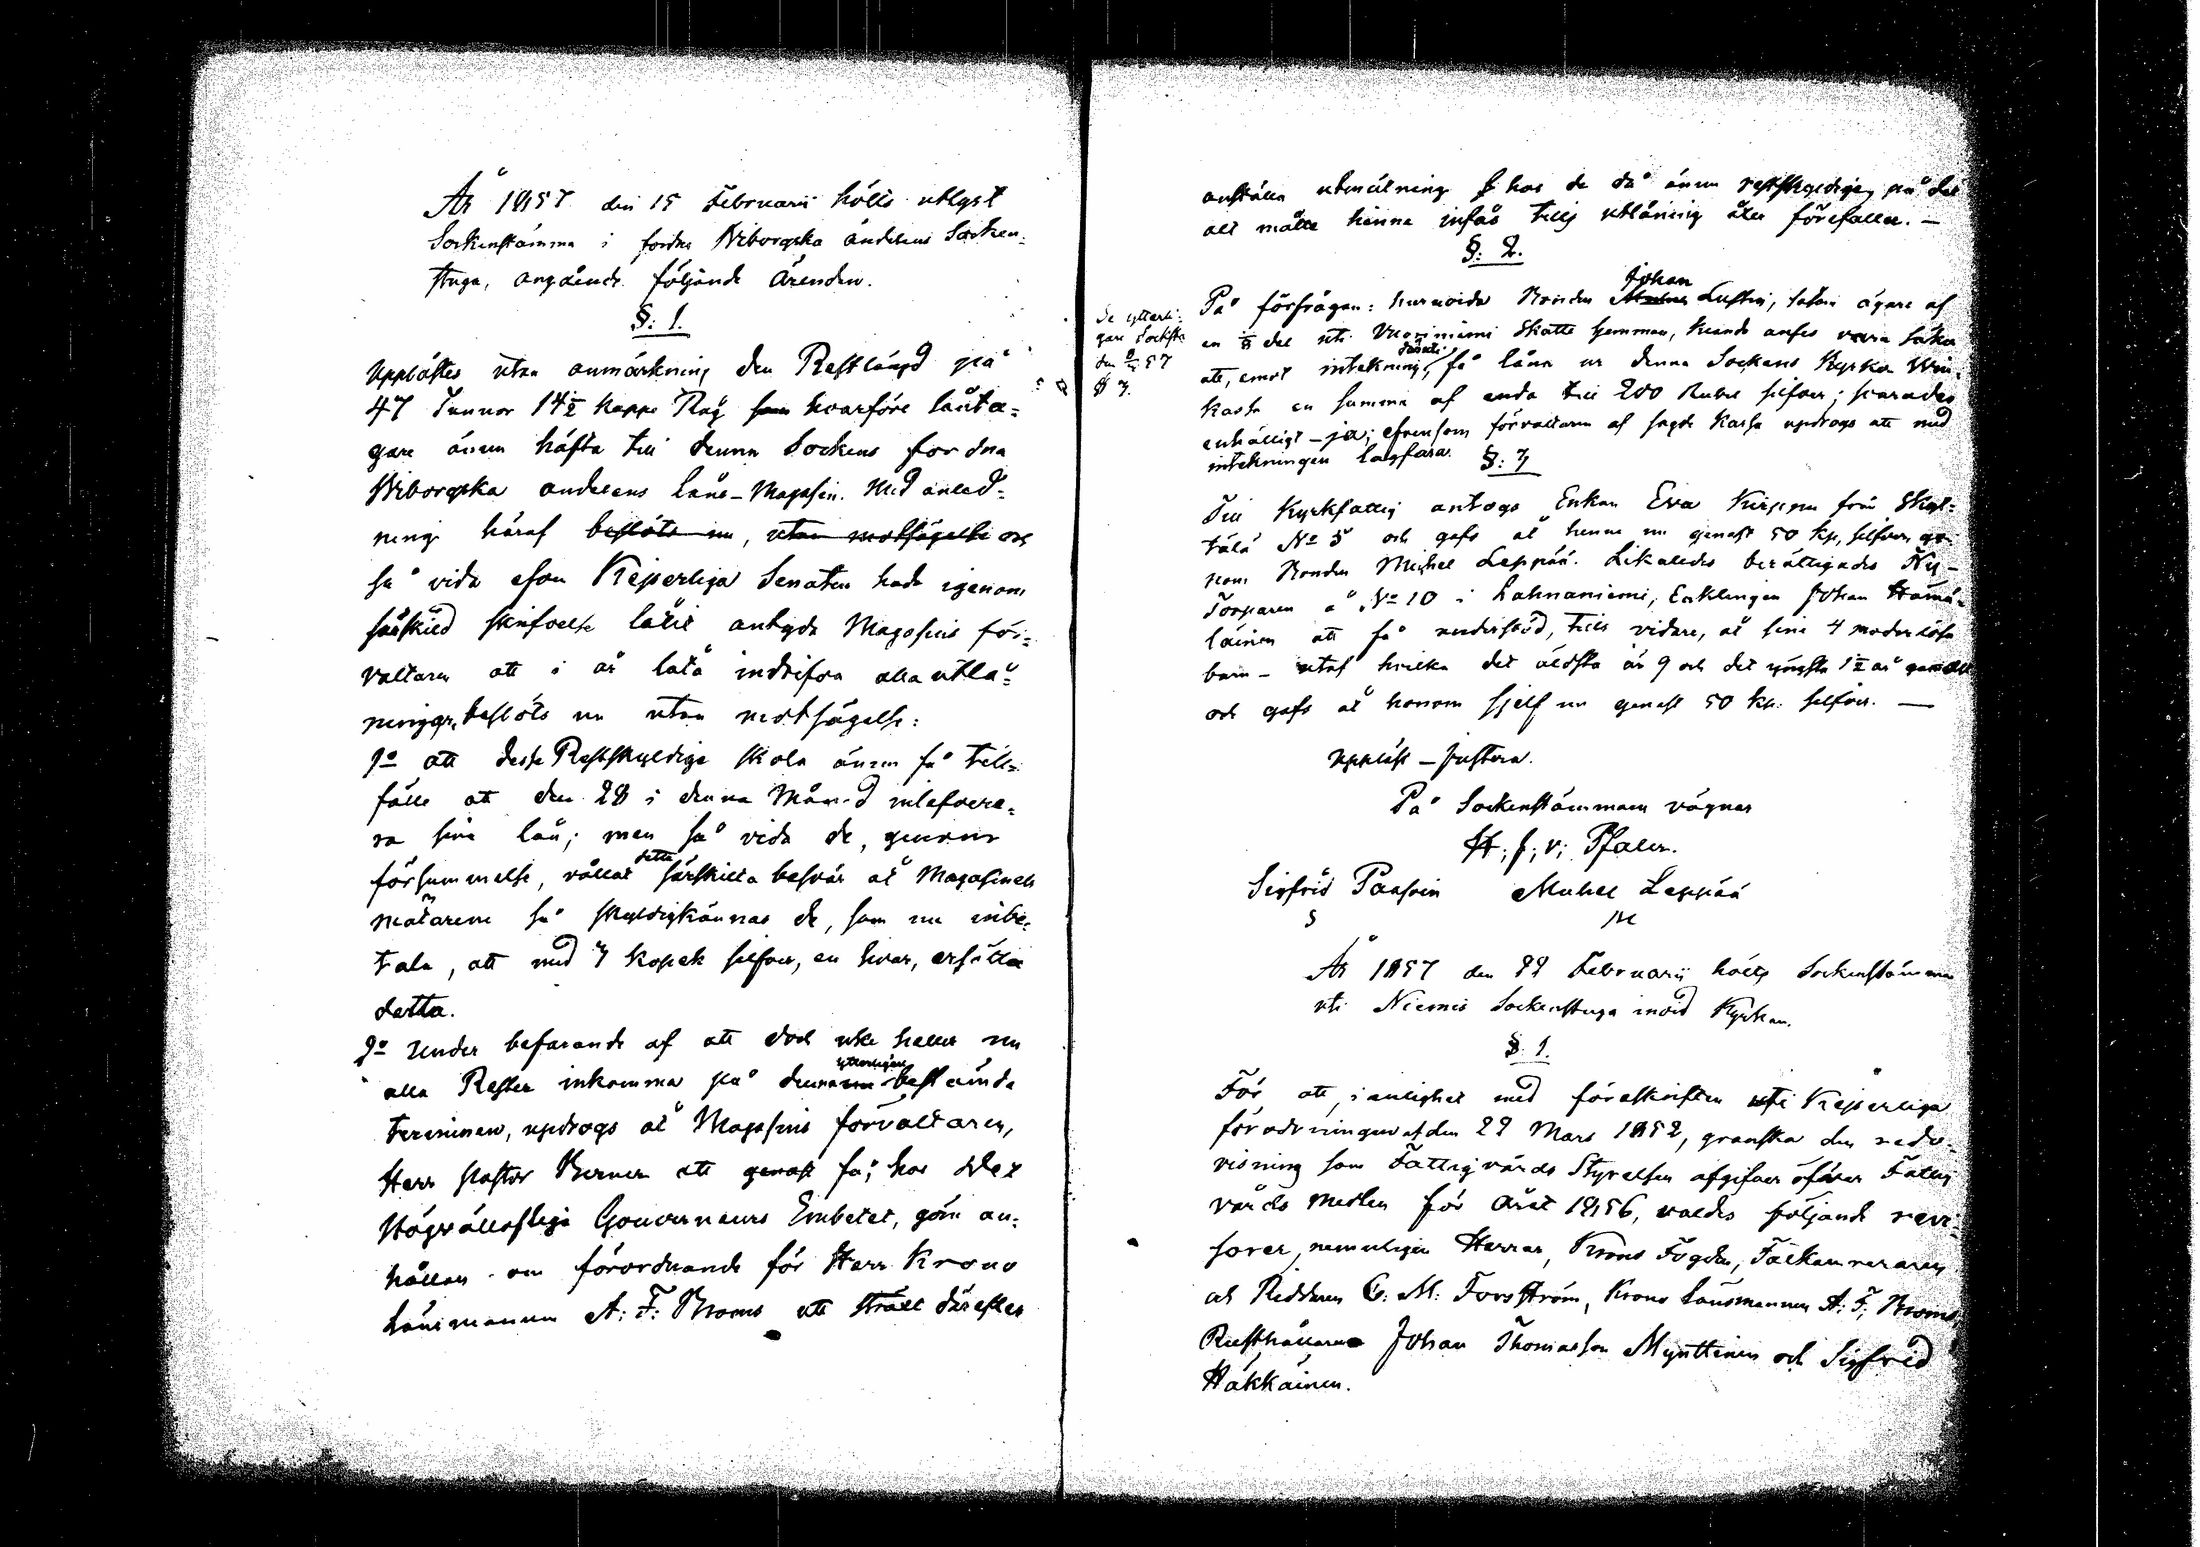 År 1857 den 15 Februarii hölls utlyst
Sockenstämma i fordna Wiborgska andelens Socken-
stuga, angående följande ärenden.
§: 1.
Upplästes utan anmärkning den Restlängd på
47 Tunnor 14½ kappe Råg som hvarföre låntа-
gare ännu häfta till denna Sockens fordna
Wiborgska andelens Låne-Magasin. Med anled-
ning häraf beslöts nu, utan motsägelse och
så vida efven Kejserliga Senaten hade igenom
särskild skrifvelse låtit antyda Magasins för-
valtaren att i år låta indrifva alla utlå-
ningar, beslöts nu utan motsägelse:
1o att desse Restskyldige skola ännu få till-
fälle att den 28 i denna Månad inlefvere-
ra sine lån; men så vida de, genom
försummelse, vållat detta särskilta besvär åt Magasinets
mätarene så skyldigkännas de, som nu inbe-
tala, att med 3 kopek silfver, en hvar, ersätta
detta.
2o Under befarande af att dock icke heller nu
alla Rester inkomma på denna ytterligare bestämda
terminen, updrogs åt Magasins förvaltaren,
Herr Pastor Berner att genast få, hos Wex
Högvällofliga Gouverneurs Embetet, göra an-
hållan om förordnande för Herr Krono
Länsmannen A: F: Broms att strax därefter
anställa utmätning hos de då ännu restskyldige, på det
allt måtte hinna infås tills utlåning åter förefaller. —
§: 2.
Johan
På förfrågan: huruvida Bonden Luflin, såsom ägare af
en del uti Vuoriniemi Skatte hemman, kunde anses vara säker
att, emot inteckning däruti, få låna ur denna Sockens Kyrko Win-
kassa en summa af enda till 200 Rubel silfver; svarades
enhälligt - ja; efvensom förvaltaren af sagde kassa updrogs att med
inteckningen lagfara.
Se ytterli-
gare Sockst.
den 57
§ 3.
§: 3
Till Kyrkfattig antogs Enkan Eva Kirppu från Skyt-
tälä No 5 och gafs åt henne nu genast 50 kp. silfver ge-
nom Bonden Michel Leppää. Likaledes berättigades Ny-
Torparen å No 10 i Lahnaniemi, Enklingen Johan Hämä-
läinen att få understöd, tills vidare, åt sine 4 moderlösa
barn - utaf hvilka det äldsta är 9 och det yngsta 1½ år gammalt
och gafs åt honom sjelf nu genast 50 kp. silfver. —
Uppläst - justera.
På Sockenstämmans vägnar
H; f; v; Pfaler.
Sigfrid Paasoin Michel Leppää
S M
År 1857 den 22 Februarii hölls Sockenstämma
uti Niemis Sockenstuga invid Kyrkan.
§. 1.
För att, i enlighet med föreskriften uti Kejserliga
förordningen af den 22 Mars 1852, granska den redo-
visning som Fattigvårds Styrelsen afgifver öfver Fattig
vårds medlen för året 1856, valdes följande revi-
sorer, nemligen Herrar, Krono Fogden, Fältkamreraren
och Riddaren C: M: Forsström, Krono Länsmannen A: F: Broms,
Rusthållarne Johan Thomasson Mynttinen och Sigfrid
Häkkäinen.